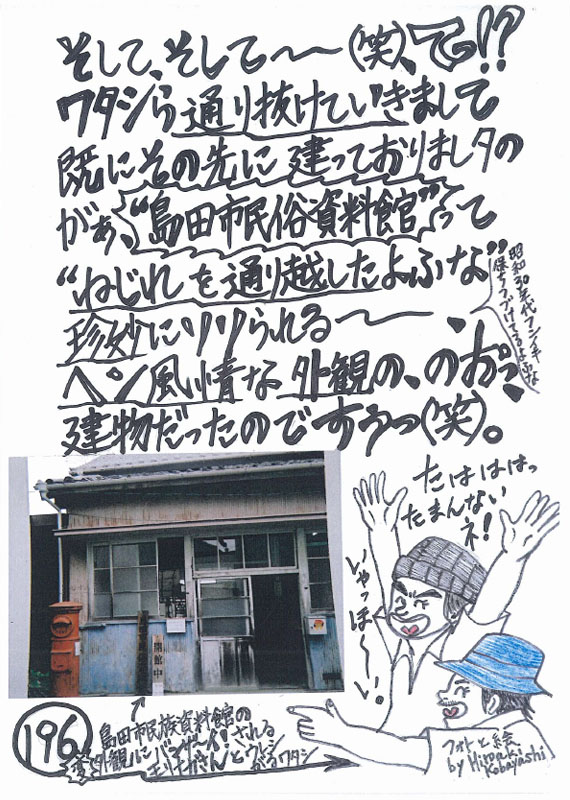 そして、そして〜〜(笑)、で!?
ワタシら通り抜けていきまして
既にその先に建っておりましタの
がぁ、“島田市民俗資料館”って
“ねじれを通り越したよふな”
昭和30年代フンイキ
保ちつづけてるよふな
珍妙にソソられる〜〜
ヘン風情な外観の、のおっ、
建物だったのですぅっ(笑)。
たはははっ
たまんない
ネ!
いやっほ〜い。
開館中
196
島田市民族資料館の
変外観にバンザ〜イ!される
とウレシ
がるワタシ
フォトと絵
by Hiroaki
Kobayashi